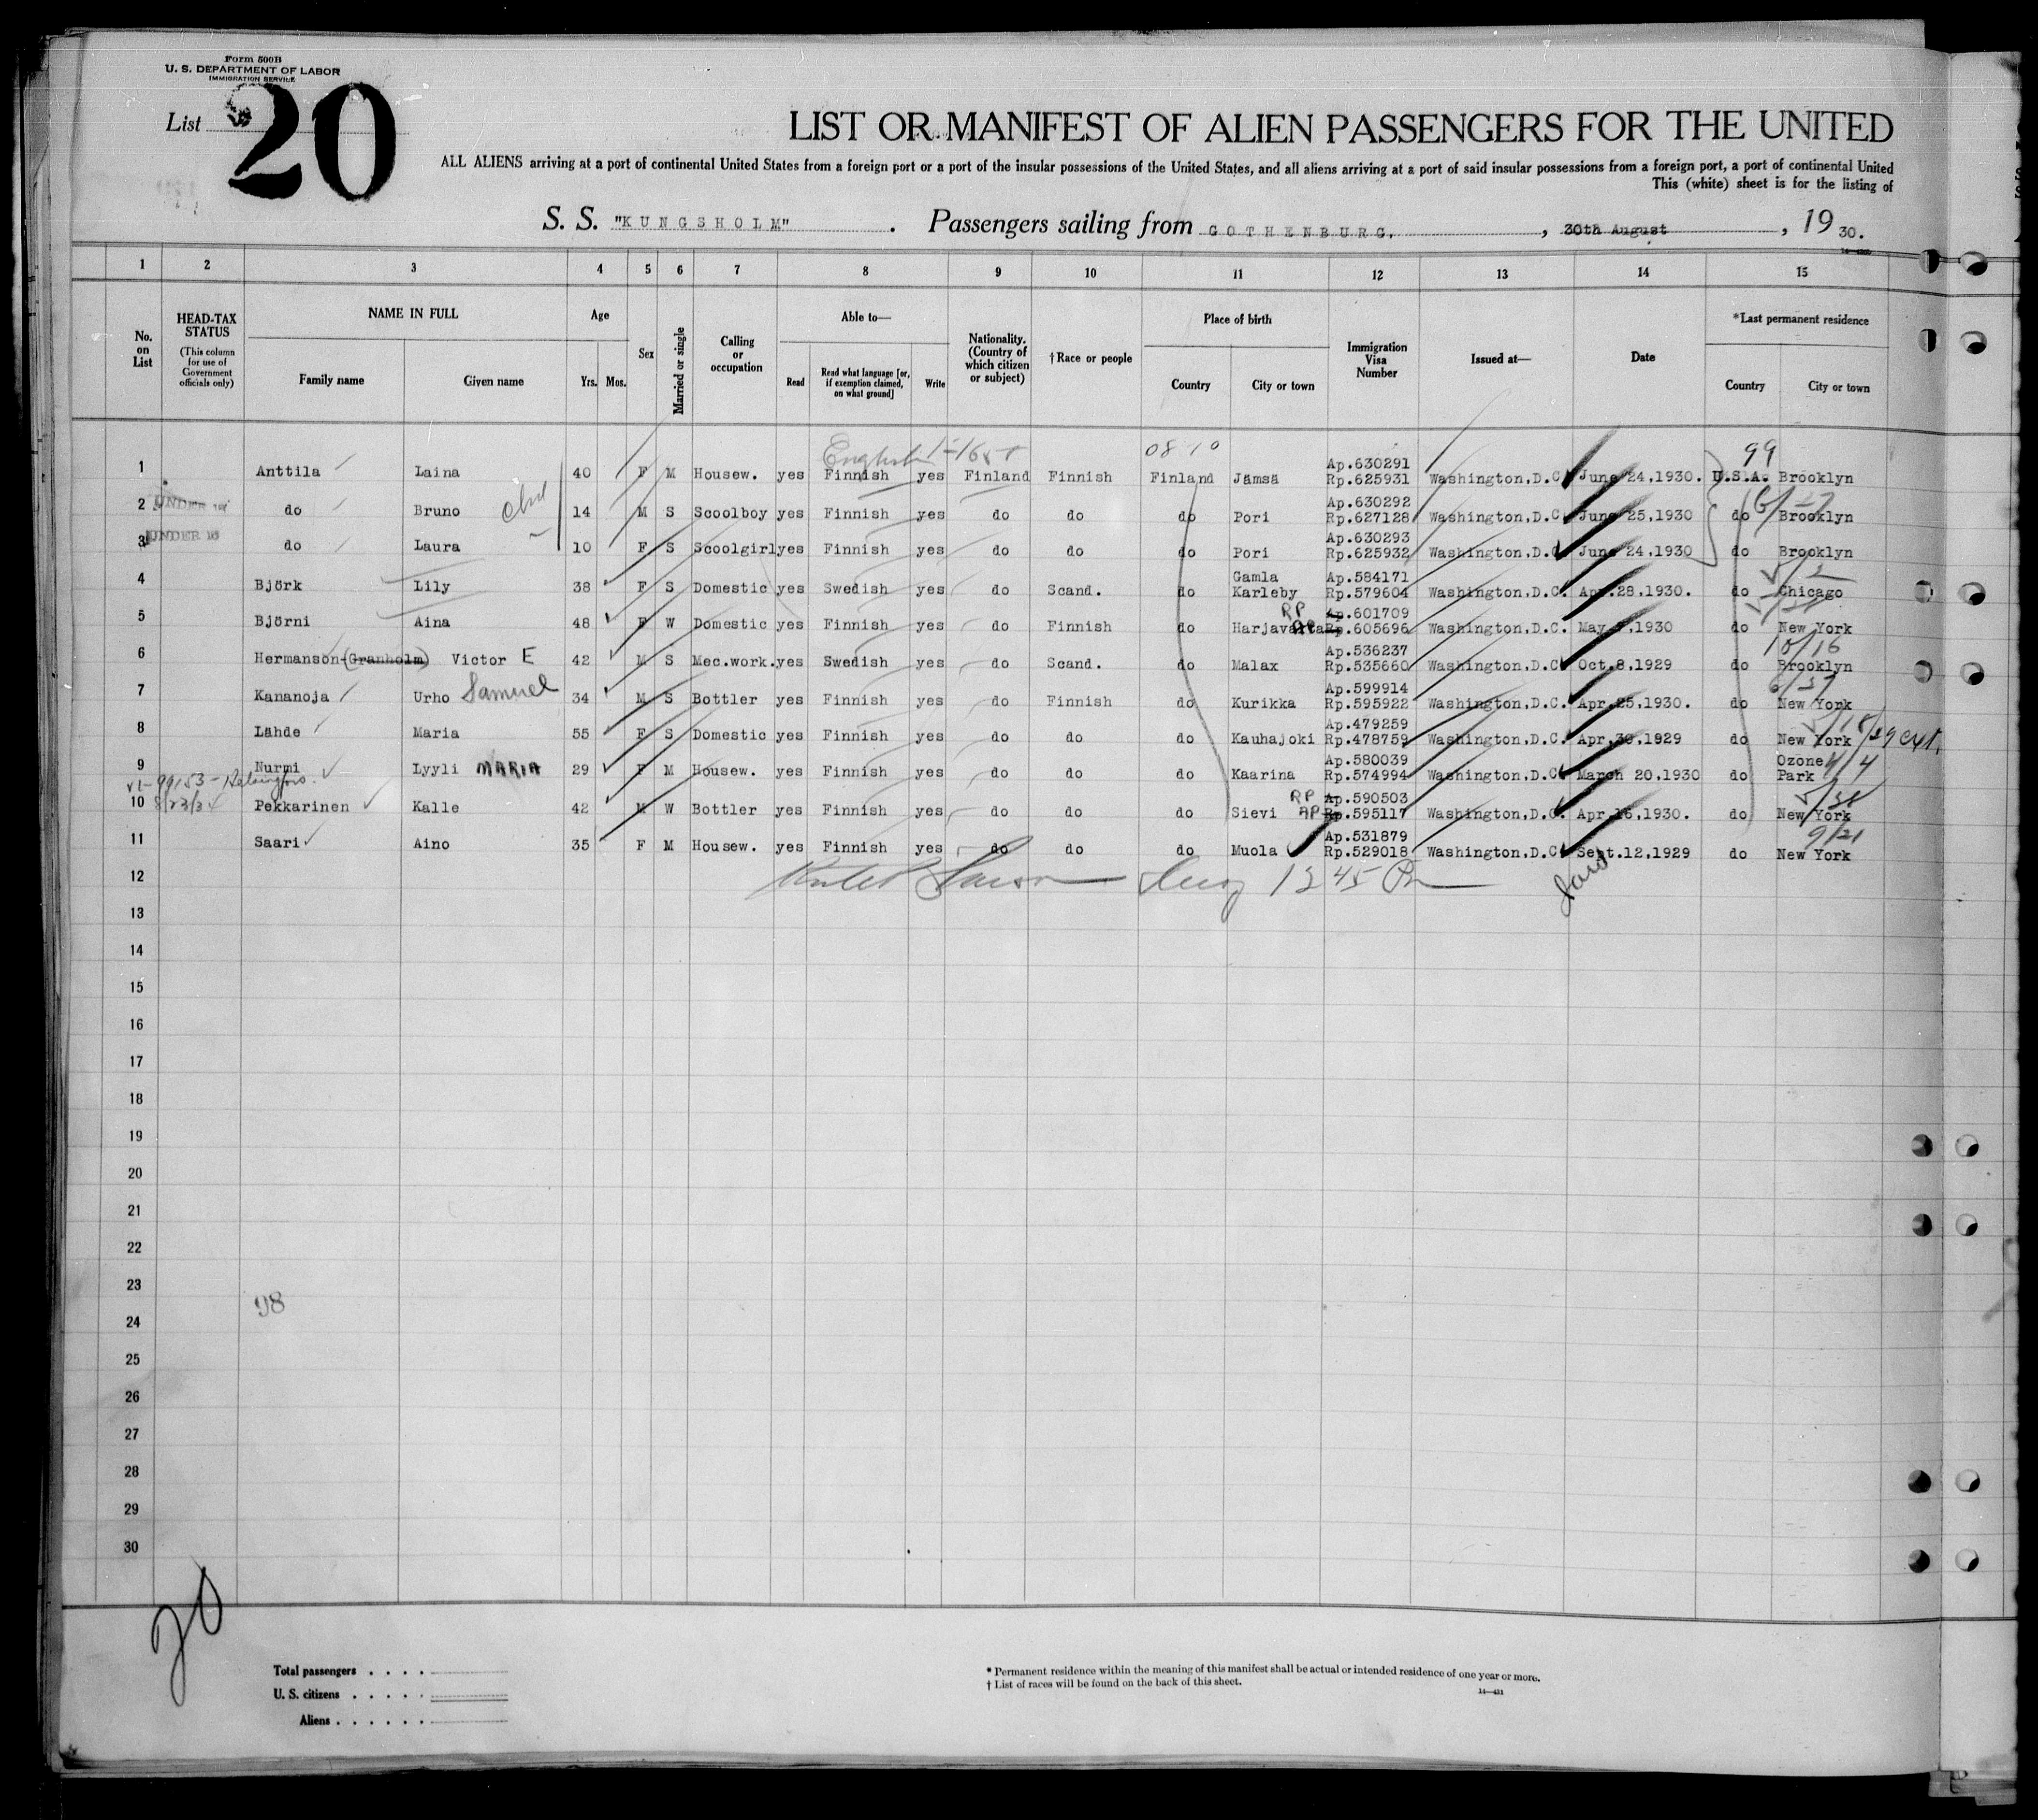 Form 500B
U. S. DEPARTMENT OF LABOR
IMMIGRATION SERVICE
List 20
LIST OR MANIFEST OF ALIEN PASSENGERS FOR THE UNITED
ALL ALIENS arriving at a port of continental United States from a foreign port or a port of the insular possessions of the United States, and all aliens arriving at a port of said insular possessions from a foreign port, a port of continental United
This (white) sheet is for the listing of
S. S. "KUNGSHOLM" . Passengers sailing from GOTHENBURG. , 30th August , 19 30.
1 2 3 4 5 6 7 8 9 10 11 12 13 14 15
No. on List
HEAD-TAX STATUS (This column for use of Government officials only)
NAME IN FULL Family name Given name
Age Yrs. Mos.
Sex
Married or single
Calling or occupation
Able to— Read Read what language [or, if exemption claimed, on what ground] Write
Nationality. (Country of which citizen or subject)
†Race or people
Place of birth Country City or town
Immigration Visa Number
Issued at—
Date
*Last permanent residence Country City or town
English 99
1 Anttila Laina 40 F M Housew. yes Finnish yes Finland Finnish Finland Jämsä Ap.630291 Rp.625931 Washington,D.C. June 24,1930. U.S.A. Brooklyn
2 UNDER 16 do Bruno 14 M S Scoolboy yes Finnish yes do do do Pori Ap.630292 Rp.627128 Washington,D.C. June 25,1930 do Brooklyn
3 UNDER 16 do Laura 10 F S Scoolgirl yes Finnish yes do do do Pori Ap.630293 Rp.625932 Washington,D.C. June 24,1930 do Brooklyn
4 Björk Lily 38 F S Domestic yes Swedish yes do Scand. do Gamla Karleby Ap.584171 Rp.579604 Washington,D.C. Apr.28,1930. do Chicago
5 Björni Aina 48 F W Domestic yes Finnish yes do Finnish do Harjavalta RP Ap.601709 AP Rp.605696 Washington,D.C. May ,1930 do New York
6 Hermanson (Granholm) Victor E 42 M S Mec.work. yes Swedish yes do Scand. do Malax Ap.536237 Rp.535660 Washington,D.C. Oct.8,1929 do Brooklyn 10/16
7 Kananoja Urho Samuel 34 M S Bottler yes Finnish yes do Finnish do Kurikka Ap.599914 Rp.595922 Washington,D.C. Apr.25,1930. do New York
8 Lähde Maria 55 F S Domestic yes Finnish yes do do do Kauhajoki Ap.479259 Rp.478759 Washington,D.C. Apr.30,1929 do New York
9 Nurmi Lyyli MARIA 29 F M Housew. yes Finnish yes do do do Kaarina Ap.580039 Rp.574994 Washington,D.C. March 20,1930 do Ozone Park 4/4
10 Pekkarinen Kalle 42 M W Bottler yes Finnish yes do do do Sievi RP Ap.590503 AP Rp.595117 Washington,D.C. Apr.16,1930. do New York
11 Saari Aino 35 F M Housew. yes Finnish yes do do do Muola Ap.531879 Rp.529018 Washington,D.C. Sept.12,1929 do New York 9/21
12
13
14
15
16
17
18
19
20
21
22
23
98
24
25
26
27
28
29
30
20
Total passengers . . . .
U. S. citizens . . . . .
Aliens . . . . . .
* Permanent residence within the meaning of this manifest shall be actual or intended residence of one year or more.
† List of races will be found on the back of this sheet.